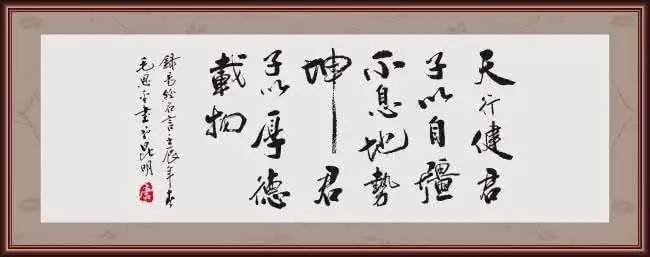 天行健君
子以自彊
不息地勢
坤君
子以厚德
載物
錄易經名言壬辰年春
毛思
書於昆明